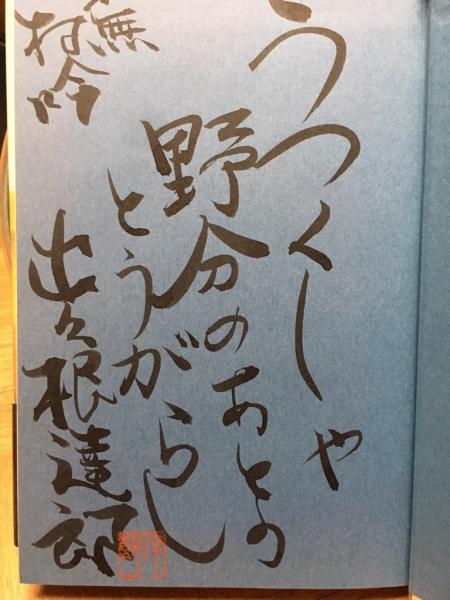 うつくしや
野分のあとの
とうがらし
蕪村吟
出久根達郎